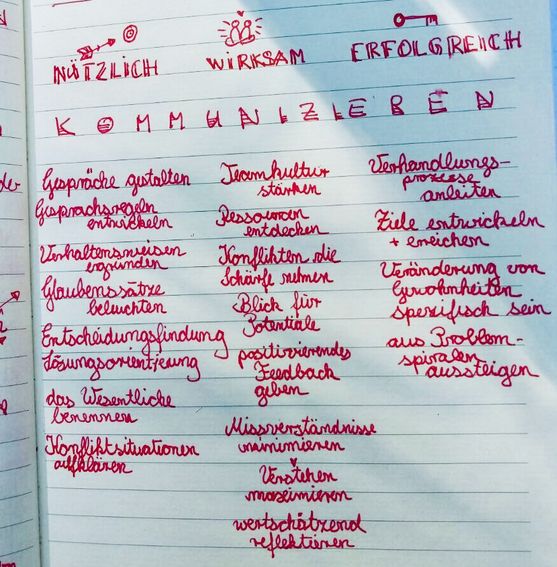 NÜTZLICH
WIRKSAM
ERFOLGREICH
KOMMUNIZIEREN
Gespräche gestalten
Gesprächsregeln
entwickeln
Verhaltensweisen
ergründen
Glaubenssätze
beleuchten
Entscheidungsfindung
Lösungsorientierung
das Wesentliche
benennen
Konfliktsituationen
aufklären
Teamkultur
stärken
Ressourcen
entdecken
Konflikten die
Schärfe nehmen
Blick für
Potentiale
positivierendes
Feedback
geben
Missverständnisse
minimieren
Verstehen
maximieren
wertschätzend
reflektieren
Verhandlungs-
prozesse
anleiten
Ziele entwickeln
+ erreichen
Veränderung von
Gewohnheiten
spezifisch sein
aus Problem-
spiralen
aussteigen